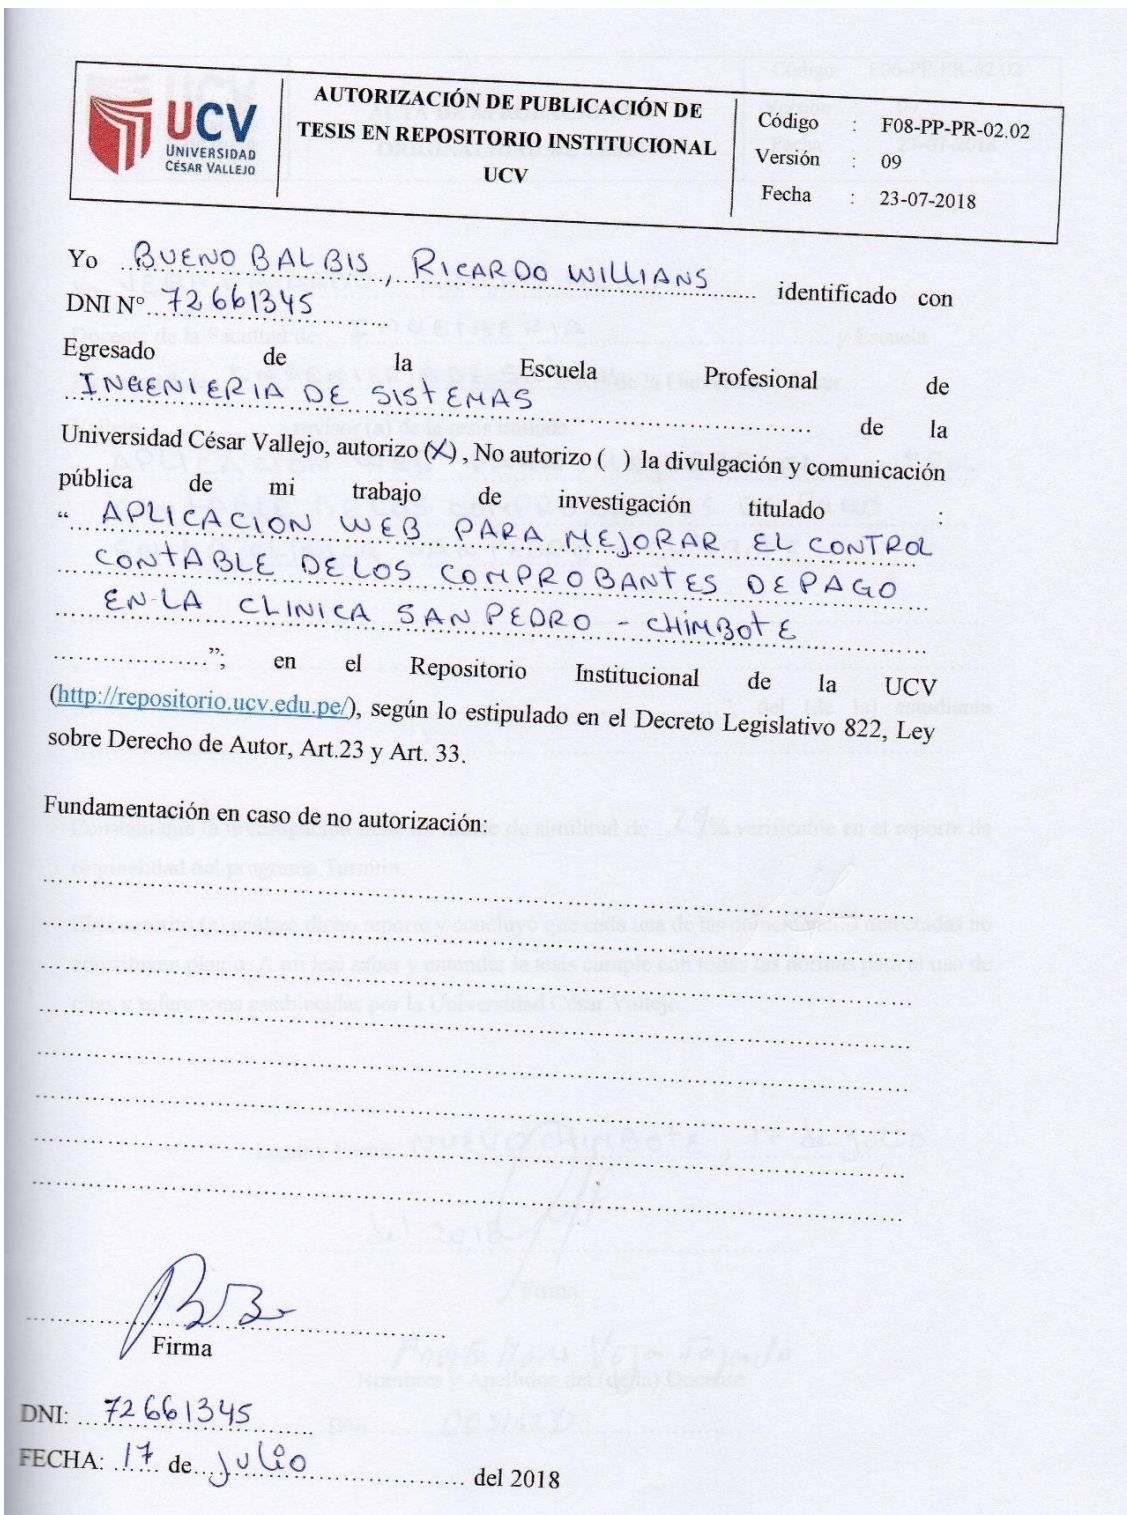 UCV
UNIVERSIDAD
CÉSAR VALLEJO
AUTORIZACIÓN DE PUBLICACIÓN DE
TESIS EN REPOSITORIO INSTITUCIONAL
UCV
Código : F08-PP-PR-02.02
Versión : 09
Fecha : 23-07-2018
Yo BUENO BALBIS, RICARDO WILLIANS identificado con
DNI N° 72661345
Egresado de la Escuela Profesional de
INGENIERIA DE SISTEMAS de la
Universidad César Vallejo, autorizo (X) , No autorizo ( ) la divulgación y comunicación
pública de mi trabajo de investigación titulado :
“ APLICACION WEB PARA MEJORAR EL CONTROL
CONTABLE DE LOS COMPROBANTES DE PAGO
EN LA CLINICA SAN PEDRO - CHIMBOTE
..................”; en el Repositorio Institucional de la UCV
(http://repositorio.ucv.edu.pe/), según lo estipulado en el Decreto Legislativo 822, Ley
sobre Derecho de Autor, Art.23 y Art. 33.
Fundamentación en caso de no autorización:
Firma
DNI: 72661345
FECHA: 17 de Julio del 2018